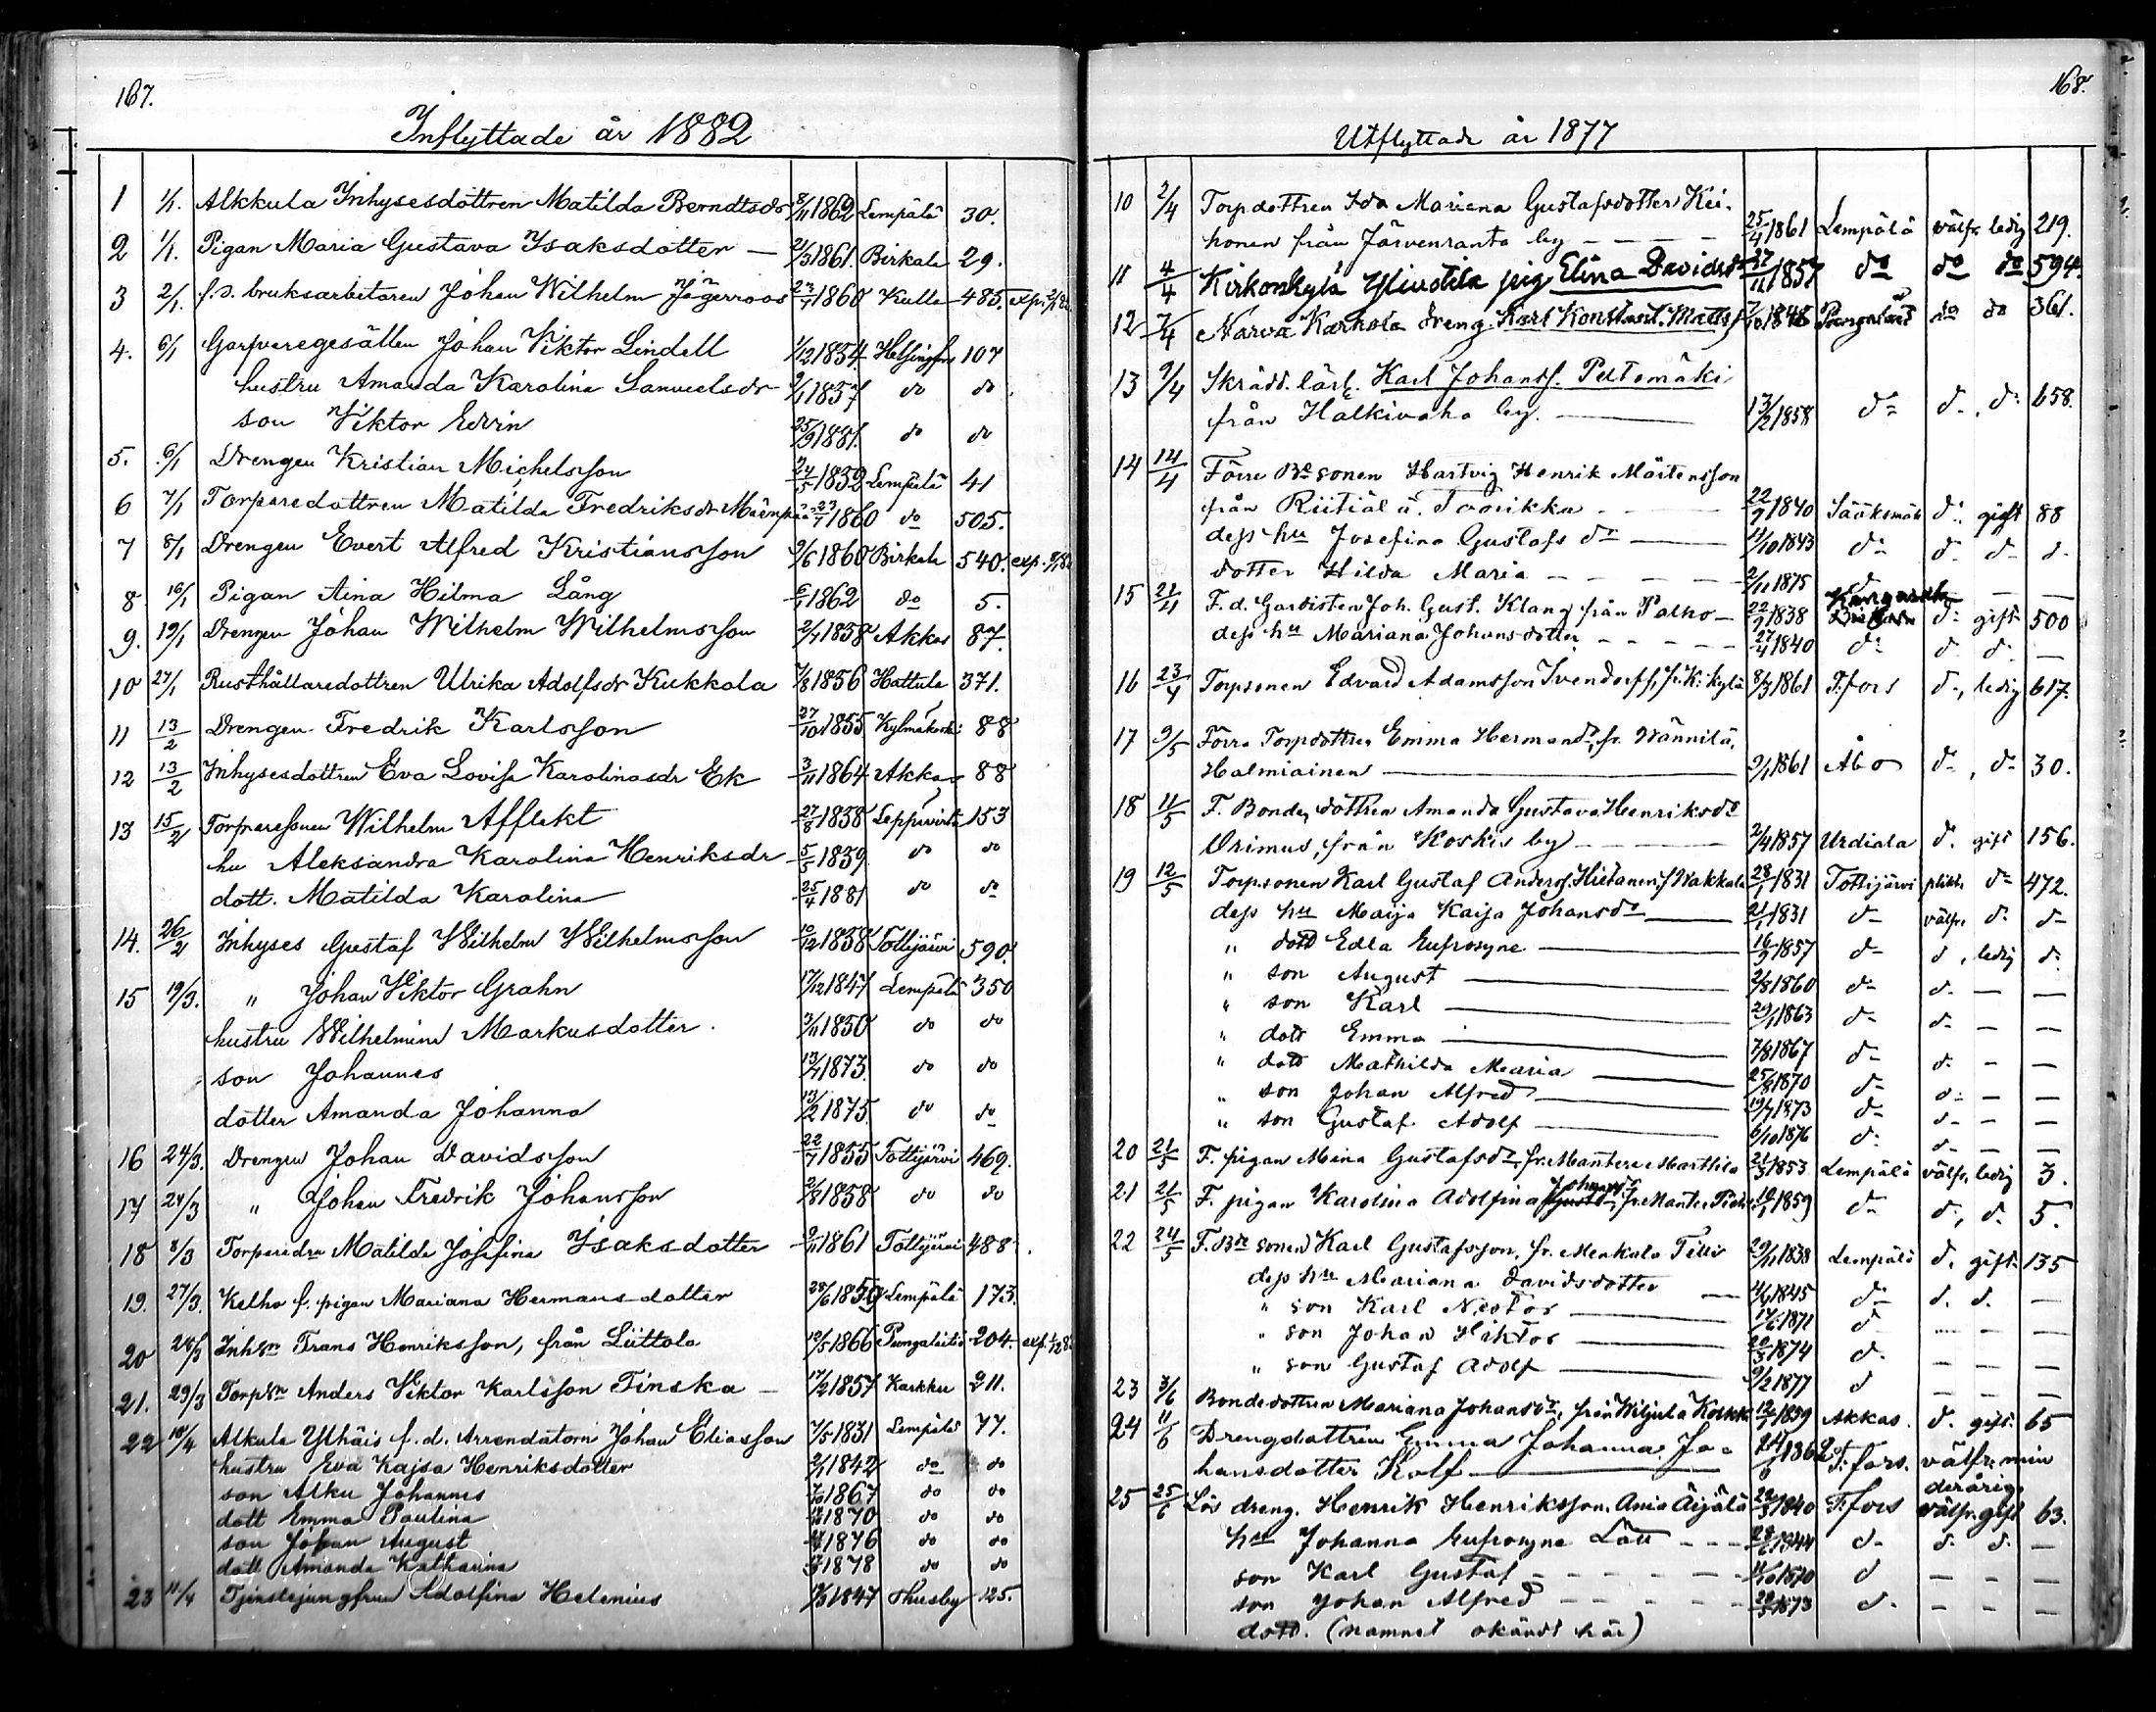 167.
Inflyttade år 1882
1 1/1. Alkkula Inhysesdottren Matilda Berndtsdr 8/11 1862 Lempälä 30.
2 1/1. Pigan Maria Gustava Isaksdotter — 21/3 1861. Birkala 29.
3 2/1. f.d. bruksarbetaren Johan Wilhelm Jägerroos 23/7 1860 Kulla 485. exp.
4. 6/1 Garfvaregesällen Johan Viktor Lindell 1/12 1854. Helsingfors 107
hustru Amanda Karolina Samuelsdr 9/1 1857 do do
son Viktor Edvin 25/9 1881. do do
5. 6/1 Drengen Kristian Michelsson 24/5 1832 Lempälä 41
6 7/1 Torparedottren Matilda Fredriksdr Mäenpää 23/7 1860 do 505.
7 8/1 Drengen Evert Alfred Kristiansson 9/6 1860 Birkala 540. exp.
8 16/1 Pigan Aina Hilma Lång 6/1 1862 do 5.
9. 19/1 Drengen Johan Wilhelm Wilhelmsson 2/1 1858 Akkas 87.
10 27/1 Rusthållaredottren Ulrika Adolfsdr Kukkola 7/8 1856 Hattula 371.
11 13/2 Drengen Fredrik Karlsson 27/10 1855 Kylmäkoski 88
12 13/2 Inhysesdottren Eva Lovisa Karolinasdr Ek 3/11 1864 Akkas 88
13 15/2 Torparesonen Wilhelm Afflekt 27/8 1838 Leppävirta 153
hu Aleksandra Karolina Henriksdr 5/5 1839 do do
dott. Matilda Karolina 25/4 1881 do do
14. 26/2 Inhyses Gustaf Wilhelm Wilhelmsson 10/12 1858 Tottijärvi 590.
15 19/3. " Johan Viktor Grahn 17/12 1847 Lempälä 350
hustru Wilhelmina Markusdotter. 3/11 1850 do do
son Johannes 13/7 1873. do do
dotter Amanda Johanna 13/2 1875. do do
16 24/3. Drengen Johan Davidsson 22/7 1855 Tottijärvi 469.
17 24/3 " Johan Fredrik Johansson 2/8 1858 do do
18 8/3 Torparedrn Matilda Josefina Isaksdotter 9/11 1861 Tottijärvi 488.
19. 27/3. Kelho f. pigan Mariana Hermansdotter 28/6 1859 Lempälä 173.
20 28/3 Inhsn Frans Henriksson, från Liittola 12/5 1866 Pungalaitio 204. exp.
21. 29/3 Torpsn Anders Viktor Karlsson Finska — 17/2 1857 Karkku 211.
22 10/4 Alkula Ylhäis f.d. Arrendatorn Johan Eliasson 7/5 1831 Lempälä 77.
hustru Eva Kajsa Henriksdotter 2/1 1842 do do
son Alku Johannes 7/10 1867 do do
dott Emma Paulina 1870 do do
son Johan August 1876 do do
dott Amanda Katharina 1878 do do
23 11/4 Tjenstejungfrun Adolfina Helenius 1847 Thusby 125.
168.
Utflyttade år 1877
10 2/4 Torpdottren Ida Mariana Gustafsdotter Kei-
honen från Järvenranta by — 25/4 1861 Lempälä välfr. ledig 219.
11 4/4 Kirkonkylä Yliuotila pig. Elina Davidsdr 27/11 1857 do do do 594.
12 7/4 Narva Karhola dreng Karl Konstant. Matts. 7/10 1848 Pungalaitio do do 361.
13 9/4 Skrädd. lärl. Karl Johanss. Peltomäki
från Halkivaha by. — 13/2 1858 do do, do 658.
14 14/4 Förre Bdesonen Hartvig Henrik Mårtensson
från Riitiälä. Tvorikka 22/9 1840 Sääksmäki do. gift 88
dess hu Josefina Gustafs dr — 11/10 1843 do do do do
dotter Hilda Maria — 2/11 1875 do — —
15 21/4 F.d. Gardisten Joh. Gust. Klang från Palho — 22/9 1838 Kangasala do gift 500
dess hu Mariana Johansdotter — 27/4 1840 do do do —
16 23/4 Torpsonen Edvard Adamsson Svendorff, fr. K:kylä 8/3 1861 T:fors do, ledig 617.
17 9/5 Förra Torpdottren Emma Hermansdr, fr. Wännilä,
Halmiainen — 9/1 1861 Åbo do, do 30.
18 11/5 F. Bondedottren Amanda Gustava Henriksdr
Orimus, från Koskis by — 2/4 1857 Urdiala do. gift 156.
19 12/5 Torpsonen Karl Gustaf Anderss. Hietanen, f. Wakkala 28/1 1831 Tottijärvi plikt. do 472.
dess hu Maija Kaisa Johansdr — 21/1 1831 do välfr. do do
" dott Edla Eufrosyne — 16/9 1857 do do, ledig do
" son August — 2/8 1860 do do — —
" son Karl — 29/1 1863 do do — —
" dott Emma — 7/8 1867 do do — —
" dott Mathilda Maria — 25/8 1870 do do — —
" son Johan Alfred — 19/7 1873 do do — —
" son Gustaf Adolf — 6/10 1876 do do — —
20 21/5 F. pigan Mina Gustafsdr, fr. Mantere Marttila 21/3 1853 Lempälä välfr. ledig 3.
21 21/5 F. pigan Karolina Adolfina Johansdr, fr. Mantere 19/1 1859 do do, do 5.
22 24/5 F. Bde sonen Karl Gustafsson, fr. Menkala Pelli 29/11 1838 Lempälä do. gift 135
dess hu Mariana Davidsdotter — 1845 do do. do. —
" son Karl Nestor — 17/6 1871 do — —
" son Johan Viktor — 20/3 1874 do. — — —
" son Gustaf Adolf — 9/2 1877 do — — —
23 3/6 Bondedottren Mariana Johansdr, från Wiljula Kokk 12/7 1859 Akkas. do. gift. 65
24 11/6 Drengdottren Emma Johanna Jo-
hansdotter Rolf — 1862 T:fors. välfr. min
derårig.
25 25/6 Lös dreng. Henrik Henriksson. Ania Äijälä 22/3 1840 T:fors välfr. gift 63.
hu Johanna Eufrosyne Lätt — 1844 do do. do. —
son Karl Gustaf — 1870 do — — —
son Johan Alfred — 1873 do. — — —
dott. (namnet okändt här)